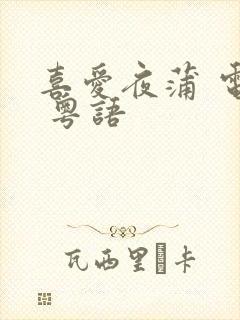 喜愛夜蒲 電
粵語
瓦西里�卡